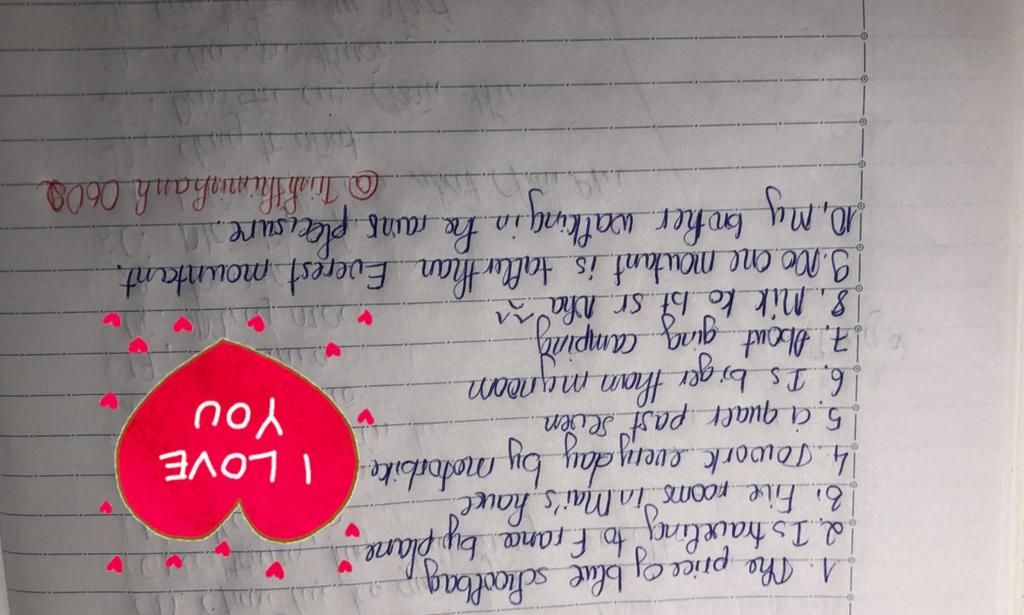 1. The price of blue schoolbag
2. Is traveling to France by plane
3. Five rooms in Mai's house
4. To work everyday by motorbike
5. a quater past seven
6. Is biger than my room
7. About going camping
8. Mik ko bt sr nha ^^
9. No one moutant is taller than Everest mountant.
10, My brother walking in the rains pleasure.
@ Tinhthiminhanh 0609
I LOVE
YOU